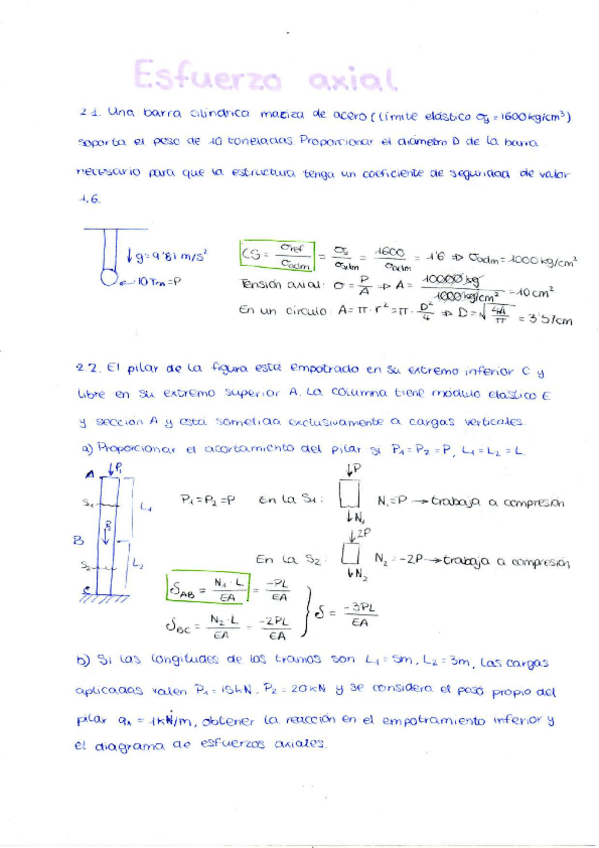 Esfuerzo axial
2.1. Una barra cilíndrica maciza de acero (límite elástico σy = 1600 kg/cm³)
soporta el peso de 10 toneladas. Proporcionar el diámetro D de la barra
necesario para que la estructura tenga un coeficiente de seguridad de valor
1.6.
↓g=9'81 m/s²
10 Tm = P
CS = σref/σadm = σy/σadm = 1600/σadm = 1'6 ⇒ σadm = 1000 kg/cm²
Tensión axial: σ = P/A ⇒ A = 10000 kg/1000 kg/cm² = 10 cm²
En un círculo: A = π·r² = π·D²/4 ⇒ D = √(4A/π) = 3'57cm
2.2. El pilar de la figura está empotrado en su extremo inferior C y
libre en su extremo superior A. La columna tiene módulo elástico E
y sección A y está sometida exclusivamente a cargas verticales.
a) Proporcionar el acortamiento del pilar si P₁=P₂=P, L₁=L₂=L.
A ↓P₁
S₁
L₁
B
P₂
S₂
L₂
C
P₁=P₂=P En la S₁: ↓P ↓N₁ N₁=P → trabaja a compresión
En la S₂: ↓2P ↓N₂ N₂=-2P → trabaja a compresión
δAB = N₁·L/EA = -PL/EA
δBC = N₂·L/EA = -2PL/EA
δ = -3PL/EA
b) Si las longitudes de los tramos son L₁ = 5m, L₂ = 3m, las cargas
aplicadas valen P₁ = 15kN, P₂ = 20kN y se considera el peso propio del
pilar q₁ = 1kN/m, obtener la reacción en el empotramiento inferior y
el diagrama de esfuerzos axiales.